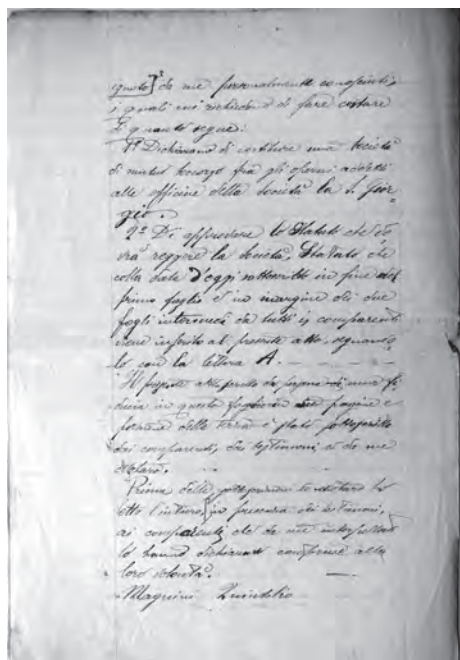 questo da me personalmente conosciuti,
i quali mi richiedono di fare constare
di quanto segue:
1º Dichiarano di costituire una Società
di mutuo Soccorso fra gli operai addetti
alle officine della Società la S. Gior-
gio.
2º Di approvare lo Statuto che do-
vrà reggere la Società, Statuto che
colla data d'oggi sottoscritto in fine del
primo foglio e in margine dei due
fogli intermedi da tutti i comparenti
viene inserito al presente atto, segnando-
lo con la lettera A.
Il presente atto scritto da persona di mia fi-
ducia in questo foglio in due pagine e
porzione della terza è stato sottoscritto
dai comparenti, dai testimoni e da me
Notaro.
Prima della sottoscrizione ho
letto l'intero, in presenza dei testimoni,
ai comparenti che da me interpellati
lo hanno dichiarato conforme alla
loro volontà.
Magrini Quintilio